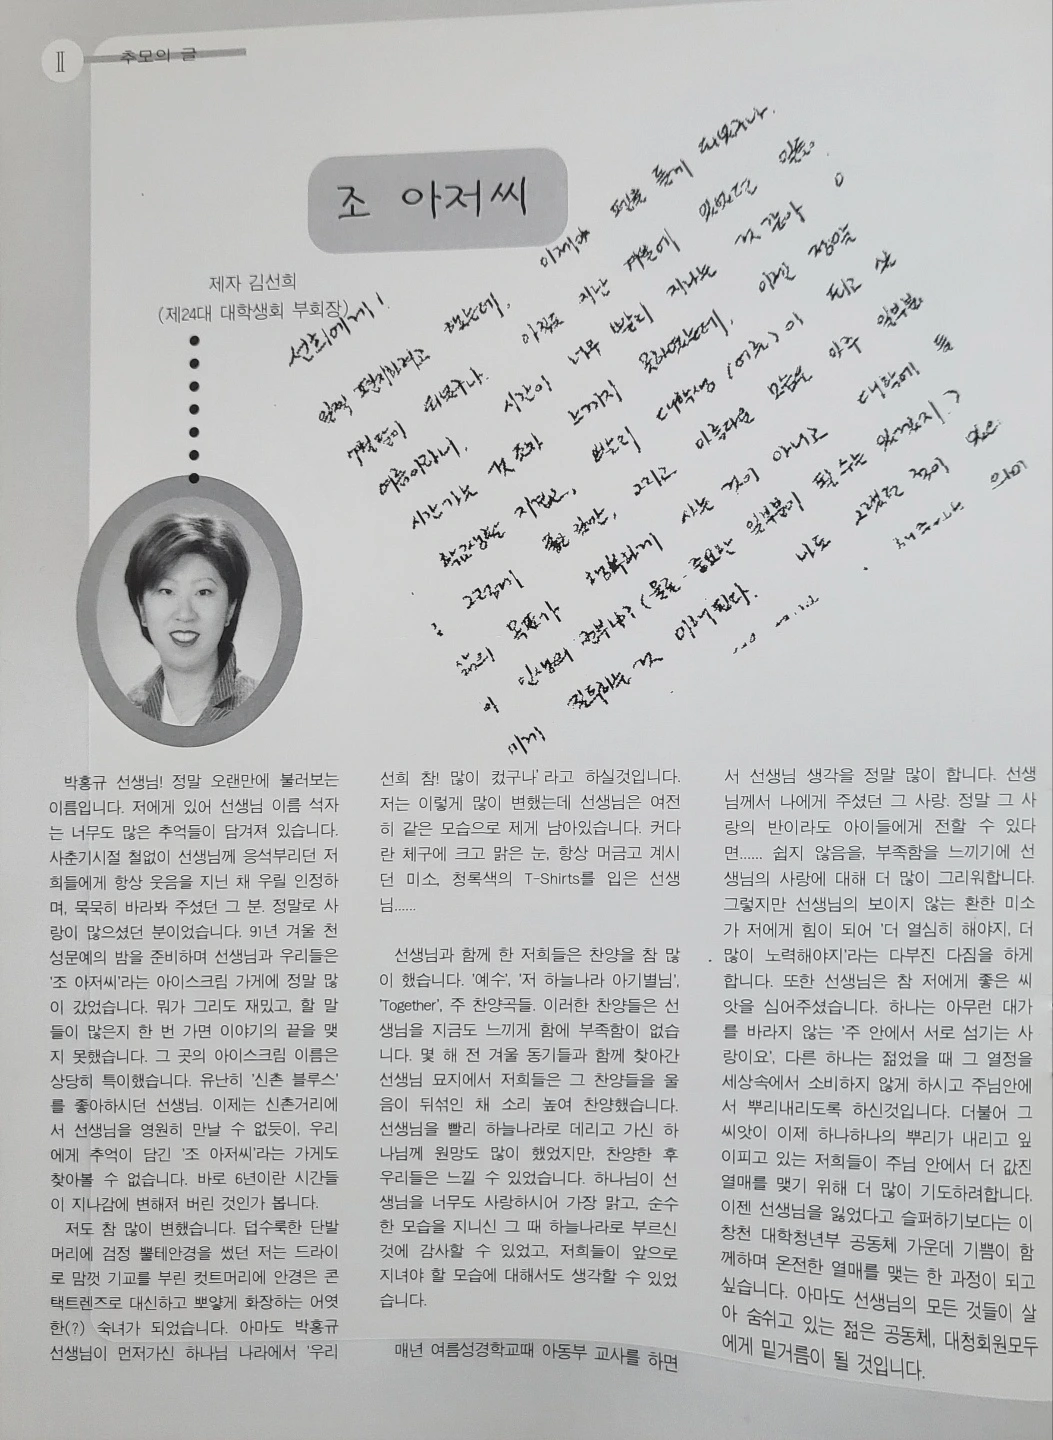 Ⅱ 추모의 글
조 아저씨
제자 김선희
(제24대 대학생회 부회장)
선희에게!
일찍 편지하려고 했는데, 이제야 펜을 들게 되었구나.
되었구나. 아직도 지난 겨울에 있었던 일들
여름이라니. 시간이 너무 빨리 지나는 것 같아
시간가는 것 조차 느끼지 못하였는데, 이젠 정말
학교생활 빨리 대학생(어른)이 되고 싶
그리고 아름다운 모습은 아주 일부분
삶의 목표가 행복하게 사는 것이 아니고 대학에 들
이 인생의 전부냐? (물론 중요한 일부분이 될 수는 있겠지.)
질투하는 것 이해된다. 나도 그랬던 적이 있
박홍규 선생님! 정말 오랜만에 불러보는
이름입니다. 저에게 있어 선생님 이름 석자
는 너무도 많은 추억들이 담겨져 있습니다.
사춘기시절 철없이 선생님께 응석부리던 저
희들에게 항상 웃음을 지닌 채 우릴 인정하
며, 묵묵히 바라봐 주셨던 그 분. 정말로 사
랑이 많으셨던 분이었습니다. 91년 겨울 천
성문예의 밤을 준비하며 선생님과 우리들은
'조 아저씨'라는 아이스크림 가게에 정말 많
이 갔었습니다. 뭐가 그리도 재밌고, 할 말
들이 많은지 한 번 가면 이야기의 끝을 맺
지 못했습니다. 그 곳의 아이스크림 이름은
상당히 특이했습니다. 유난히 '신촌 블루스'
를 좋아하시던 선생님. 이제는 신촌거리에
서 선생님을 영원히 만날 수 없듯이, 우리
에게 추억이 담긴 '조 아저씨'라는 가게도
찾아볼 수 없습니다. 바로 6년이란 시간들
이 지나감에 변해져 버린 것인가 봅니다.
저도 참 많이 변했습니다. 덥수룩한 단발
머리에 검정 뿔테안경을 썼던 저는 드라이
로 맘껏 기교를 부린 컷트머리에 안경은 콘
택트렌즈로 대신하고 뽀얗게 화장하는 어엿
한(?) 숙녀가 되었습니다. 아마도 박홍규
선생님이 먼저가신 하나님 나라에서 '우리
선희 참! 많이 컸구나'라고 하실것입니다.
저는 이렇게 많이 변했는데 선생님은 여전
히 같은 모습으로 제게 남아있습니다. 커다
란 체구에 크고 맑은 눈, 항상 머금고 계시
던 미소, 청록색의 T-Shirts를 입은 선생
님......
선생님과 함께 한 저희들은 찬양을 참 많
이 했습니다. '예수', '저 하늘나라 아기별님',
'Together', 주 찬양곡들. 이러한 찬양들은 선
생님을 지금도 느끼게 함에 부족함이 없습
니다. 몇 해 전 겨울 동기들과 함께 찾아간
선생님 묘지에서 저희들은 그 찬양들을 울
음이 뒤섞인 채 소리 높여 찬양했습니다.
선생님을 빨리 하늘나라로 데리고 가신 하
나님께 원망도 많이 했었지만, 찬양한 후
우리들은 느낄 수 있었습니다. 하나님이 선
생님을 너무도 사랑하시어 가장 맑고, 순수
한 모습을 지니신 그 때 하늘나라로 부르신
것에 감사할 수 있었고, 저희들이 앞으로
지녀야 할 모습에 대해서도 생각할 수 있었
습니다.
매년 여름성경학교때 아동부 교사를 하면
서 선생님 생각을 정말 많이 합니다. 선생
님께서 나에게 주셨던 그 사랑. 정말 그 사
랑의 반이라도 아이들에게 전할 수 있다
면...... 쉽지 않음을, 부족함을 느끼기에 선
생님의 사랑에 대해 더 많이 그리워합니다.
그렇지만 선생님의 보이지 않는 환한 미소
가 저에게 힘이 되어 '더 열심히 해야지, 더
많이 노력해야지'라는 다부진 다짐을 하게
합니다. 또한 선생님은 참 저에게 좋은 씨
앗을 심어주셨습니다. 하나는 아무런 대가
를 바라지 않는 '주 안에서 서로 섬기는 사
랑이요', 다른 하나는 젊었을 때 그 열정을
세상속에서 소비하지 않게 하시고 주님안에
서 뿌리내리도록 하신것입니다. 더불어 그
씨앗이 이제 하나하나의 뿌리가 내리고 잎
이피고 있는 저희들이 주님 안에서 더 값진
열매를 맺기 위해 더 많이 기도하려합니다.
이젠 선생님을 잃었다고 슬퍼하기보다는 이
창천 대학청년부 공동체 가운데 기쁨이 함
께하며 온전한 열매를 맺는 한 과정이 되고
싶습니다. 아마도 선생님의 모든 것들이 살
아 숨쉬고 있는 젊은 공동체, 대청회원모두
에게 밑거름이 될 것입니다.